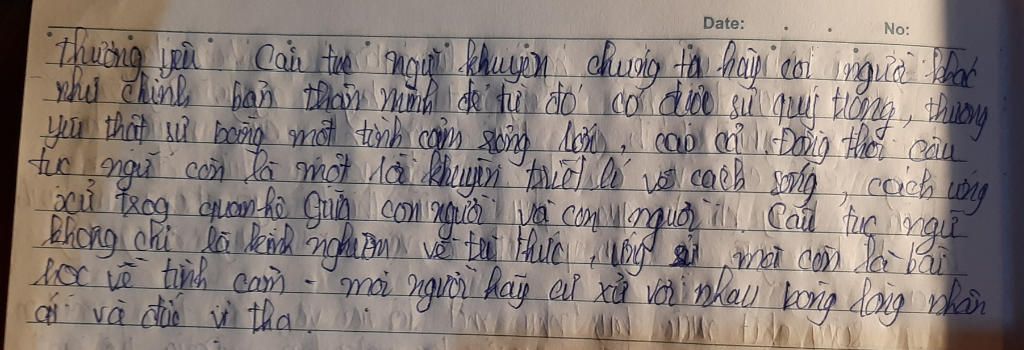 Date: No:
thương yêu. Câu tục ngữ khuyên chúng ta hãy coi người khác
như chính bản thân mình để từ đó có được sự quý trọng, thương
yêu thật sự bằng một tình cảm rộng lớn, cao cả. Đồng thời câu
tục ngữ còn là một lời khuyên triết lí về cách sống, cách ứng
xử trog quan hệ giữa con người và con người. Câu tục ngữ
không chỉ là kinh nghiệm về tri thức, ứng sử mà còn là bài
học về tình cảm - mỗi người hãy cư xử với nhau bằng lòng nhân
ái và đức vị tha.